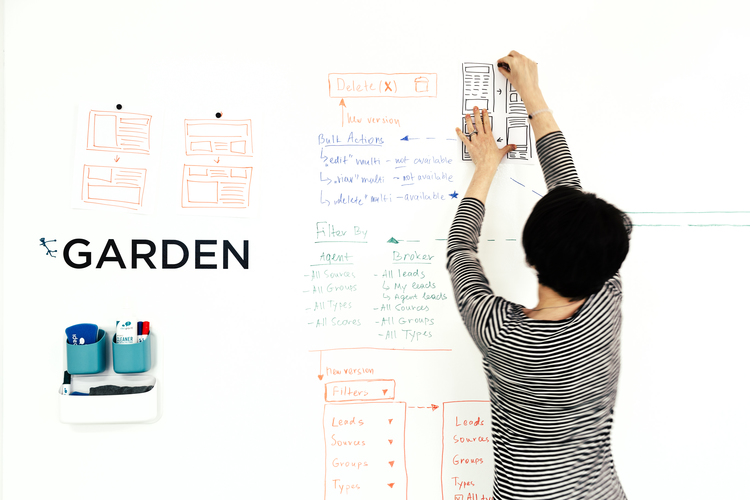 Delete (X)
New version
Bulk Actions
"edit" multi - not available
"view" multi - not available
"delete" multi - available
GARDEN
Filter By
Agent
- All Sources
- All Groups
- All Types
- All Scores
Broker
- All leads
My leads
Agent leads
- All Sources
- All Groups
- All Types
New version
Filters
Leads
Sources
Groups
Types
Leads
Sources
Groups
Types
All
CLEANER